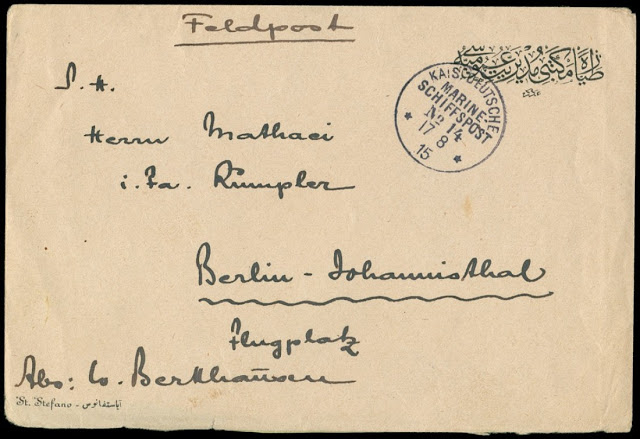 Feldpost
طياره مكتبى مديريت عموميه سى
KAIS. DEUTSCHE
MARINE-
SCHIFFSPOST
No 14
* 17 8 *
15
S. H.
Herrn Mathaei
i. Fa. Rumpler
Berlin - Johannisthal
Flugplatz
Abs: W. Berkhausen
St. Stefano - آياستفانوس